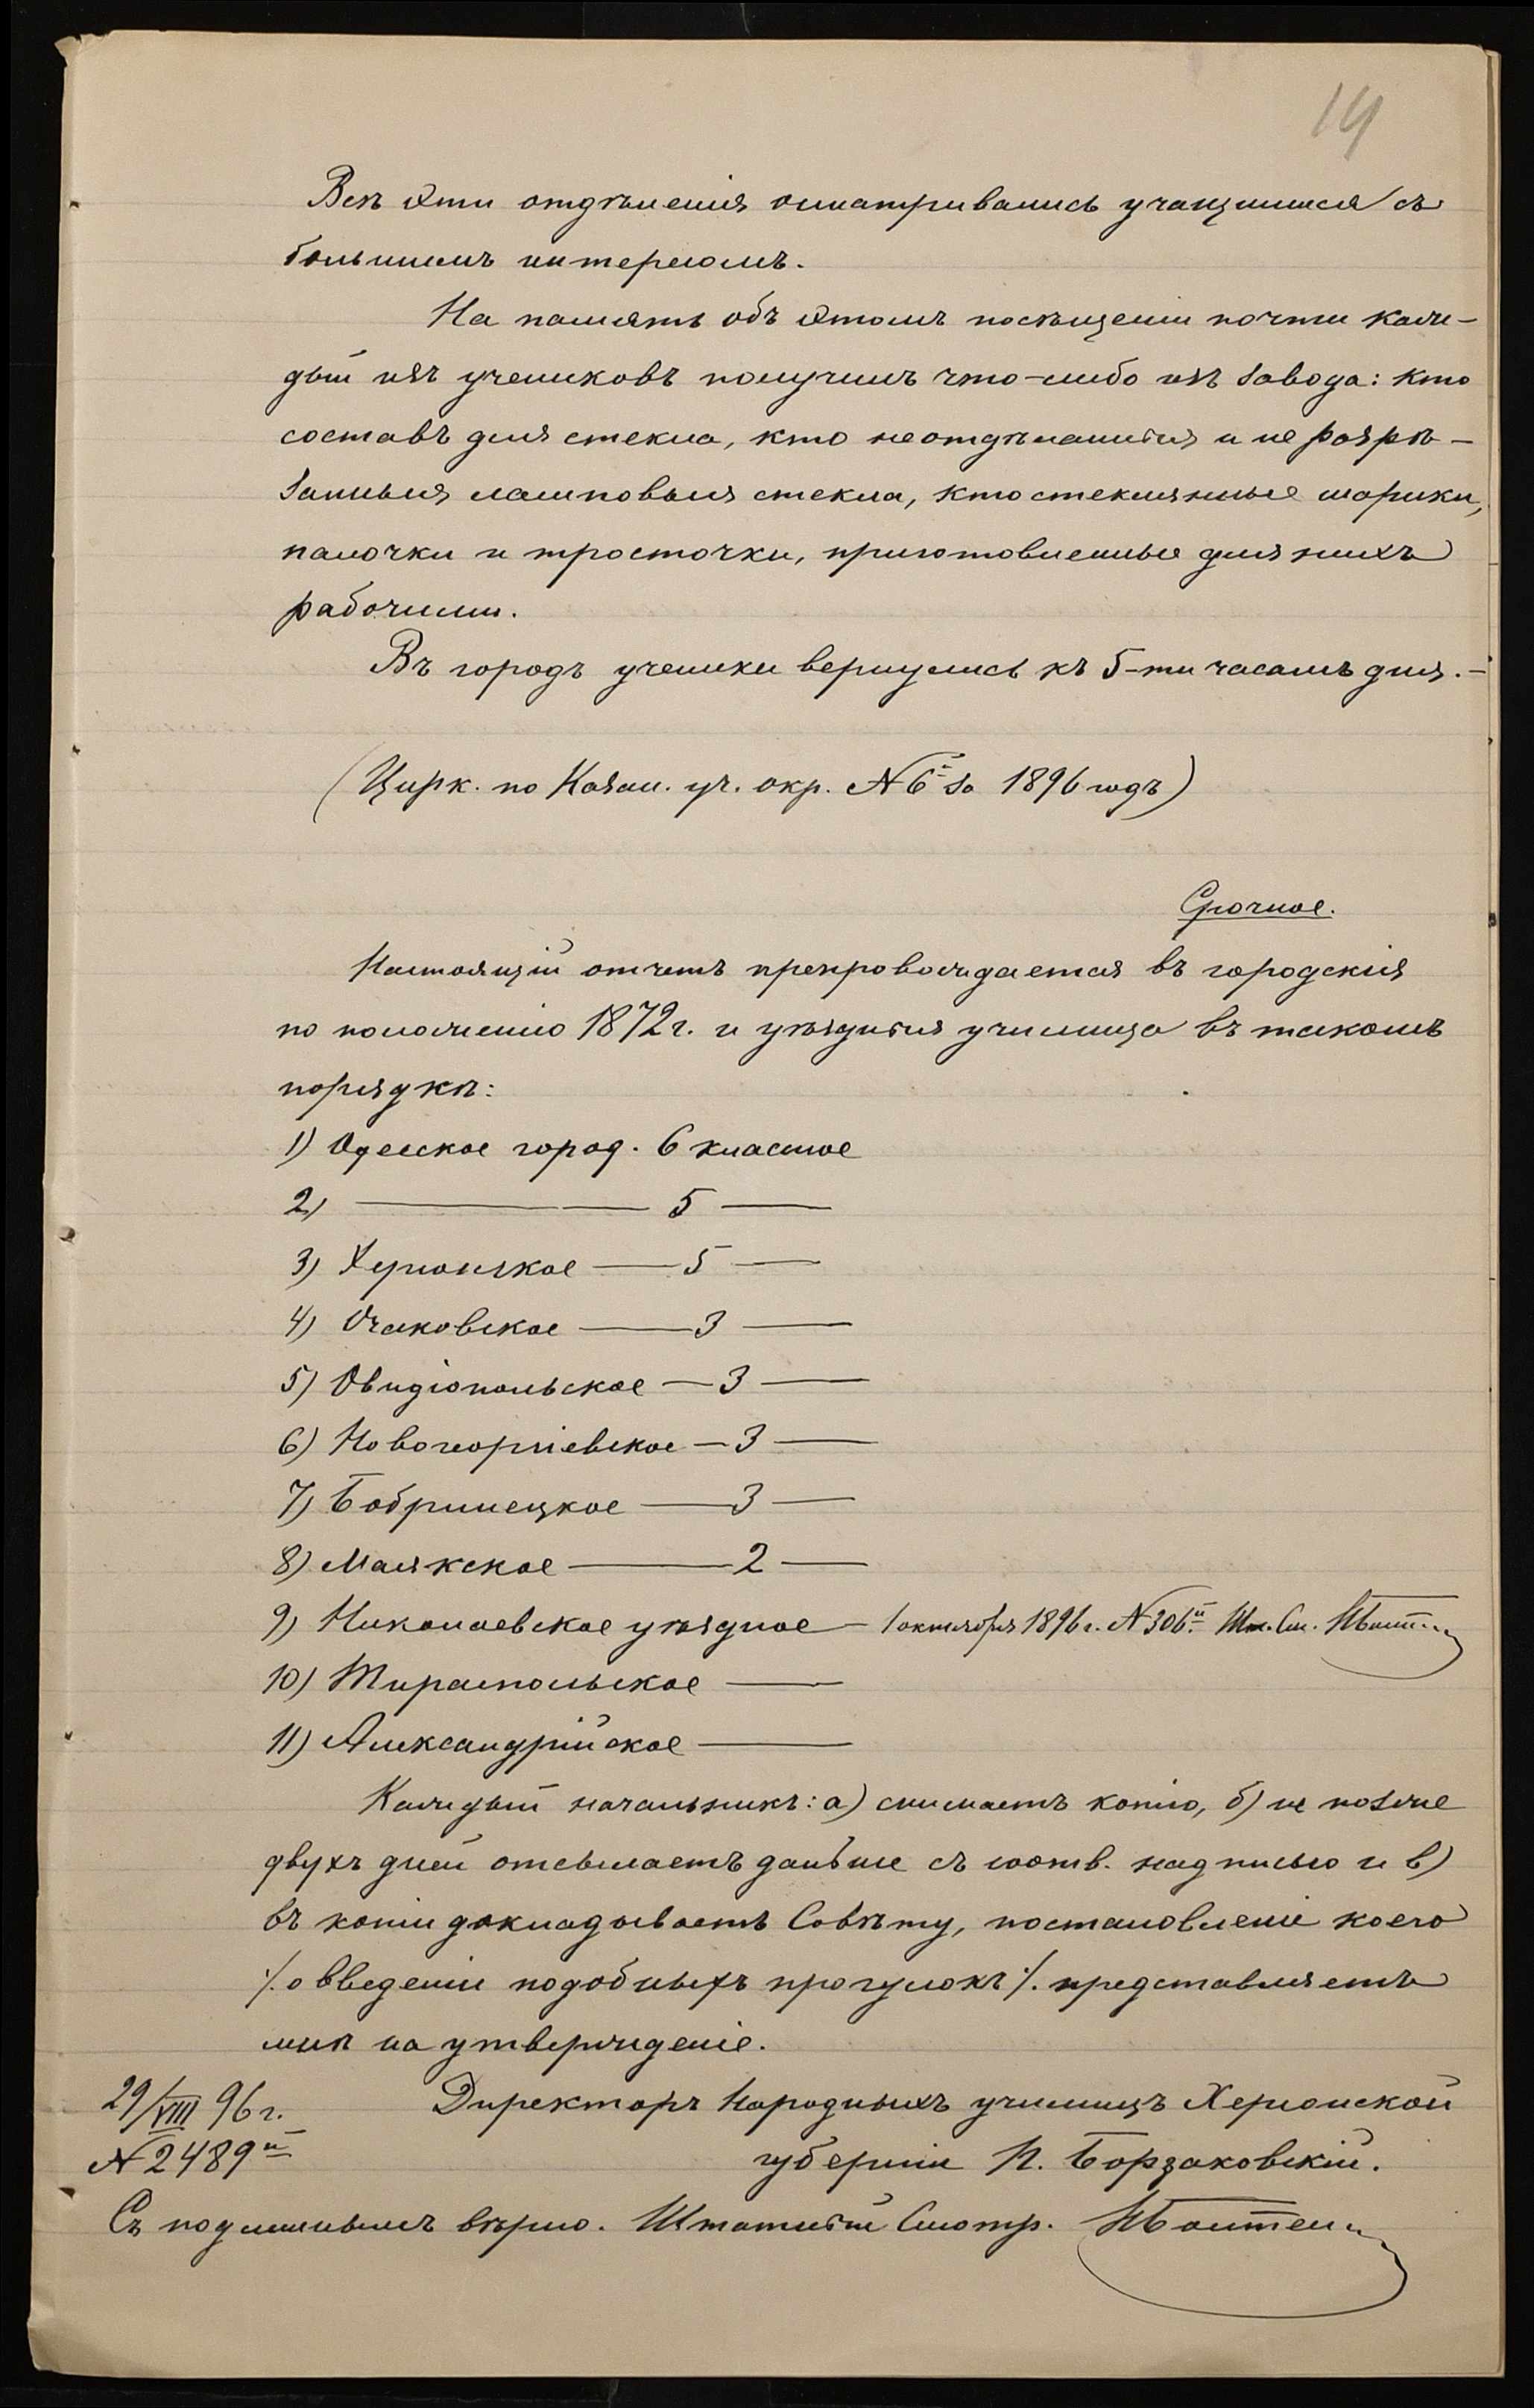 14
Всѣ эти отдѣленія осматривались учащимися съ
большимъ интересомъ.
На память объ этомъ посѣщеніи почти каж-
дый изъ учениковъ получилъ что-либо изъ завода: кто
составъ для стекла, кто неотдѣланныя и не разрѣ-
занныя ламповыя стекла, кто стеклянные шарики,
палочки и тросточки, приготовленные для нихъ
рабочими.
Въ городъ ученики вернулись къ 5-ти часамъ дня.-
(Цирк. по Казан. уч. окр. № 6й за 1896 годъ)
Срочное.
Настоящій отчетъ препровождается въ городскія
по положенію 1872 г. и уѣздныя училища въ такомъ
порядкѣ:
1) Одесское город. 6 классное
2) —— — 5 —
3) Херсонское — 5 —
4) Очаковское — 3 —
5) Овидіопольское — 3 —
6) Новогеоргіевское — 3 —
7) Бобринецкое — 3 —
8) Маякское — 2 —
9) Николаевское уѣздное — 1 октября 1896 г. № 306й. Шт. См.
10) Тираспольское —
11) Александрійское —
Каждый начальникъ: а) снимаетъ копію, б) не позже
двухъ дней отсылаетъ дальше съ соотв. надписью и в)
въ копіи докладываетъ Совѣту, постановленіе коего
·/. о введеніи подобныхъ прогулокъ ·/. представляетъ
мнѣ на утвержденіе.
29/VIII 96 г. Директоръ народныхъ училищъ Херсонской
№ 2489й губерніи П. Борзаковскій.
Съ подлиннымъ вѣрно. Штатный Смотр.